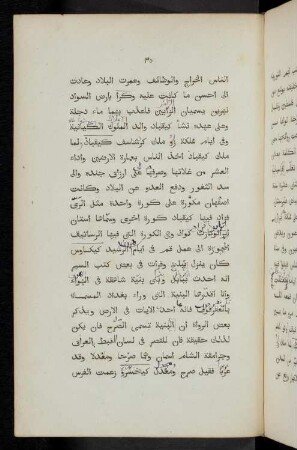 ٣٥
الناس الخراج والوظائف وعمرت البلاد وعادت
الى احسن ما كانت عليه وكرا بارض السواد
نهرين يسميان الزابين فاعذب بهما ماء دجلة
وعلى عهده نشأ كيقباد والد الملوك الكيانية
وفى ايام مملكة زاو ملك كرشاسف كيقباد لما
ملك كيقباد اخذ الناس بعمارة الارضين واداء
العشر من غلاتها وصرفها الى ارزاق جنده والى
سد الثغور ودفع العدو عن البلاد وكانت
اصفهان مكورة على كورة واحدة مثل الرى
فزاد فيها كيقباد كورة اخرى وسماها استان
كواذ وهى الكورة التى فيها الرساتيق
المحوزة الى عمل قم فى ايام الرشيد كيكاوس
كان ينزل بلخ وقرأت فى بعض كتب السير
انه احدث ببابل بنية شاهقة فى الهواء
وانا اقدرها البنية التى وراء بغداد المسماة
فانه احد الابيات فى الارض ويذكر
بعض الرواة ان البنية تسمى الصرح فان يكن
لذلك حقيقة فان للقصر فى لسان النبط العراق
وجرامقة الشام اسمان وهما صرحا ومجدلا وقد
عربا فقيل صرح ومجدل كيخسرو زعمت الفرس